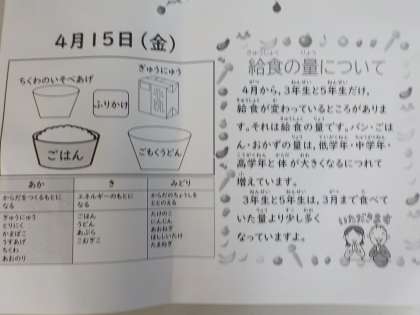 4月15日(金)
ちくわのいそべあげ
ぎゅうにゅう
ふりかけ
ごはん
ごもくうどん
あか
き
みどり
からだをつくるもとに
なる
エネルギーのもとに
なる
からだのちょうしを
ととのえる
ぎゅうにゅう
とりにく
かまぼこ
うすあげ
ちくわ
あおのり
ごはん
うどん
あぶら
こむぎこ
たけのこ
にんじん
あおねぎ
ほししいたけ
たまねぎ
給食の量について
4月から、3年生と5年生だけ、
給食が変わっているところがありま
す。それは給食の量です。パン・ごは
ん・おかずの量は、低学年・中学年・
高学年と体が大きくなるにつれて
増えています。
3年生と5年生は、3月まで食べて
いた量より少し多く
なっていますよ。
いただきます